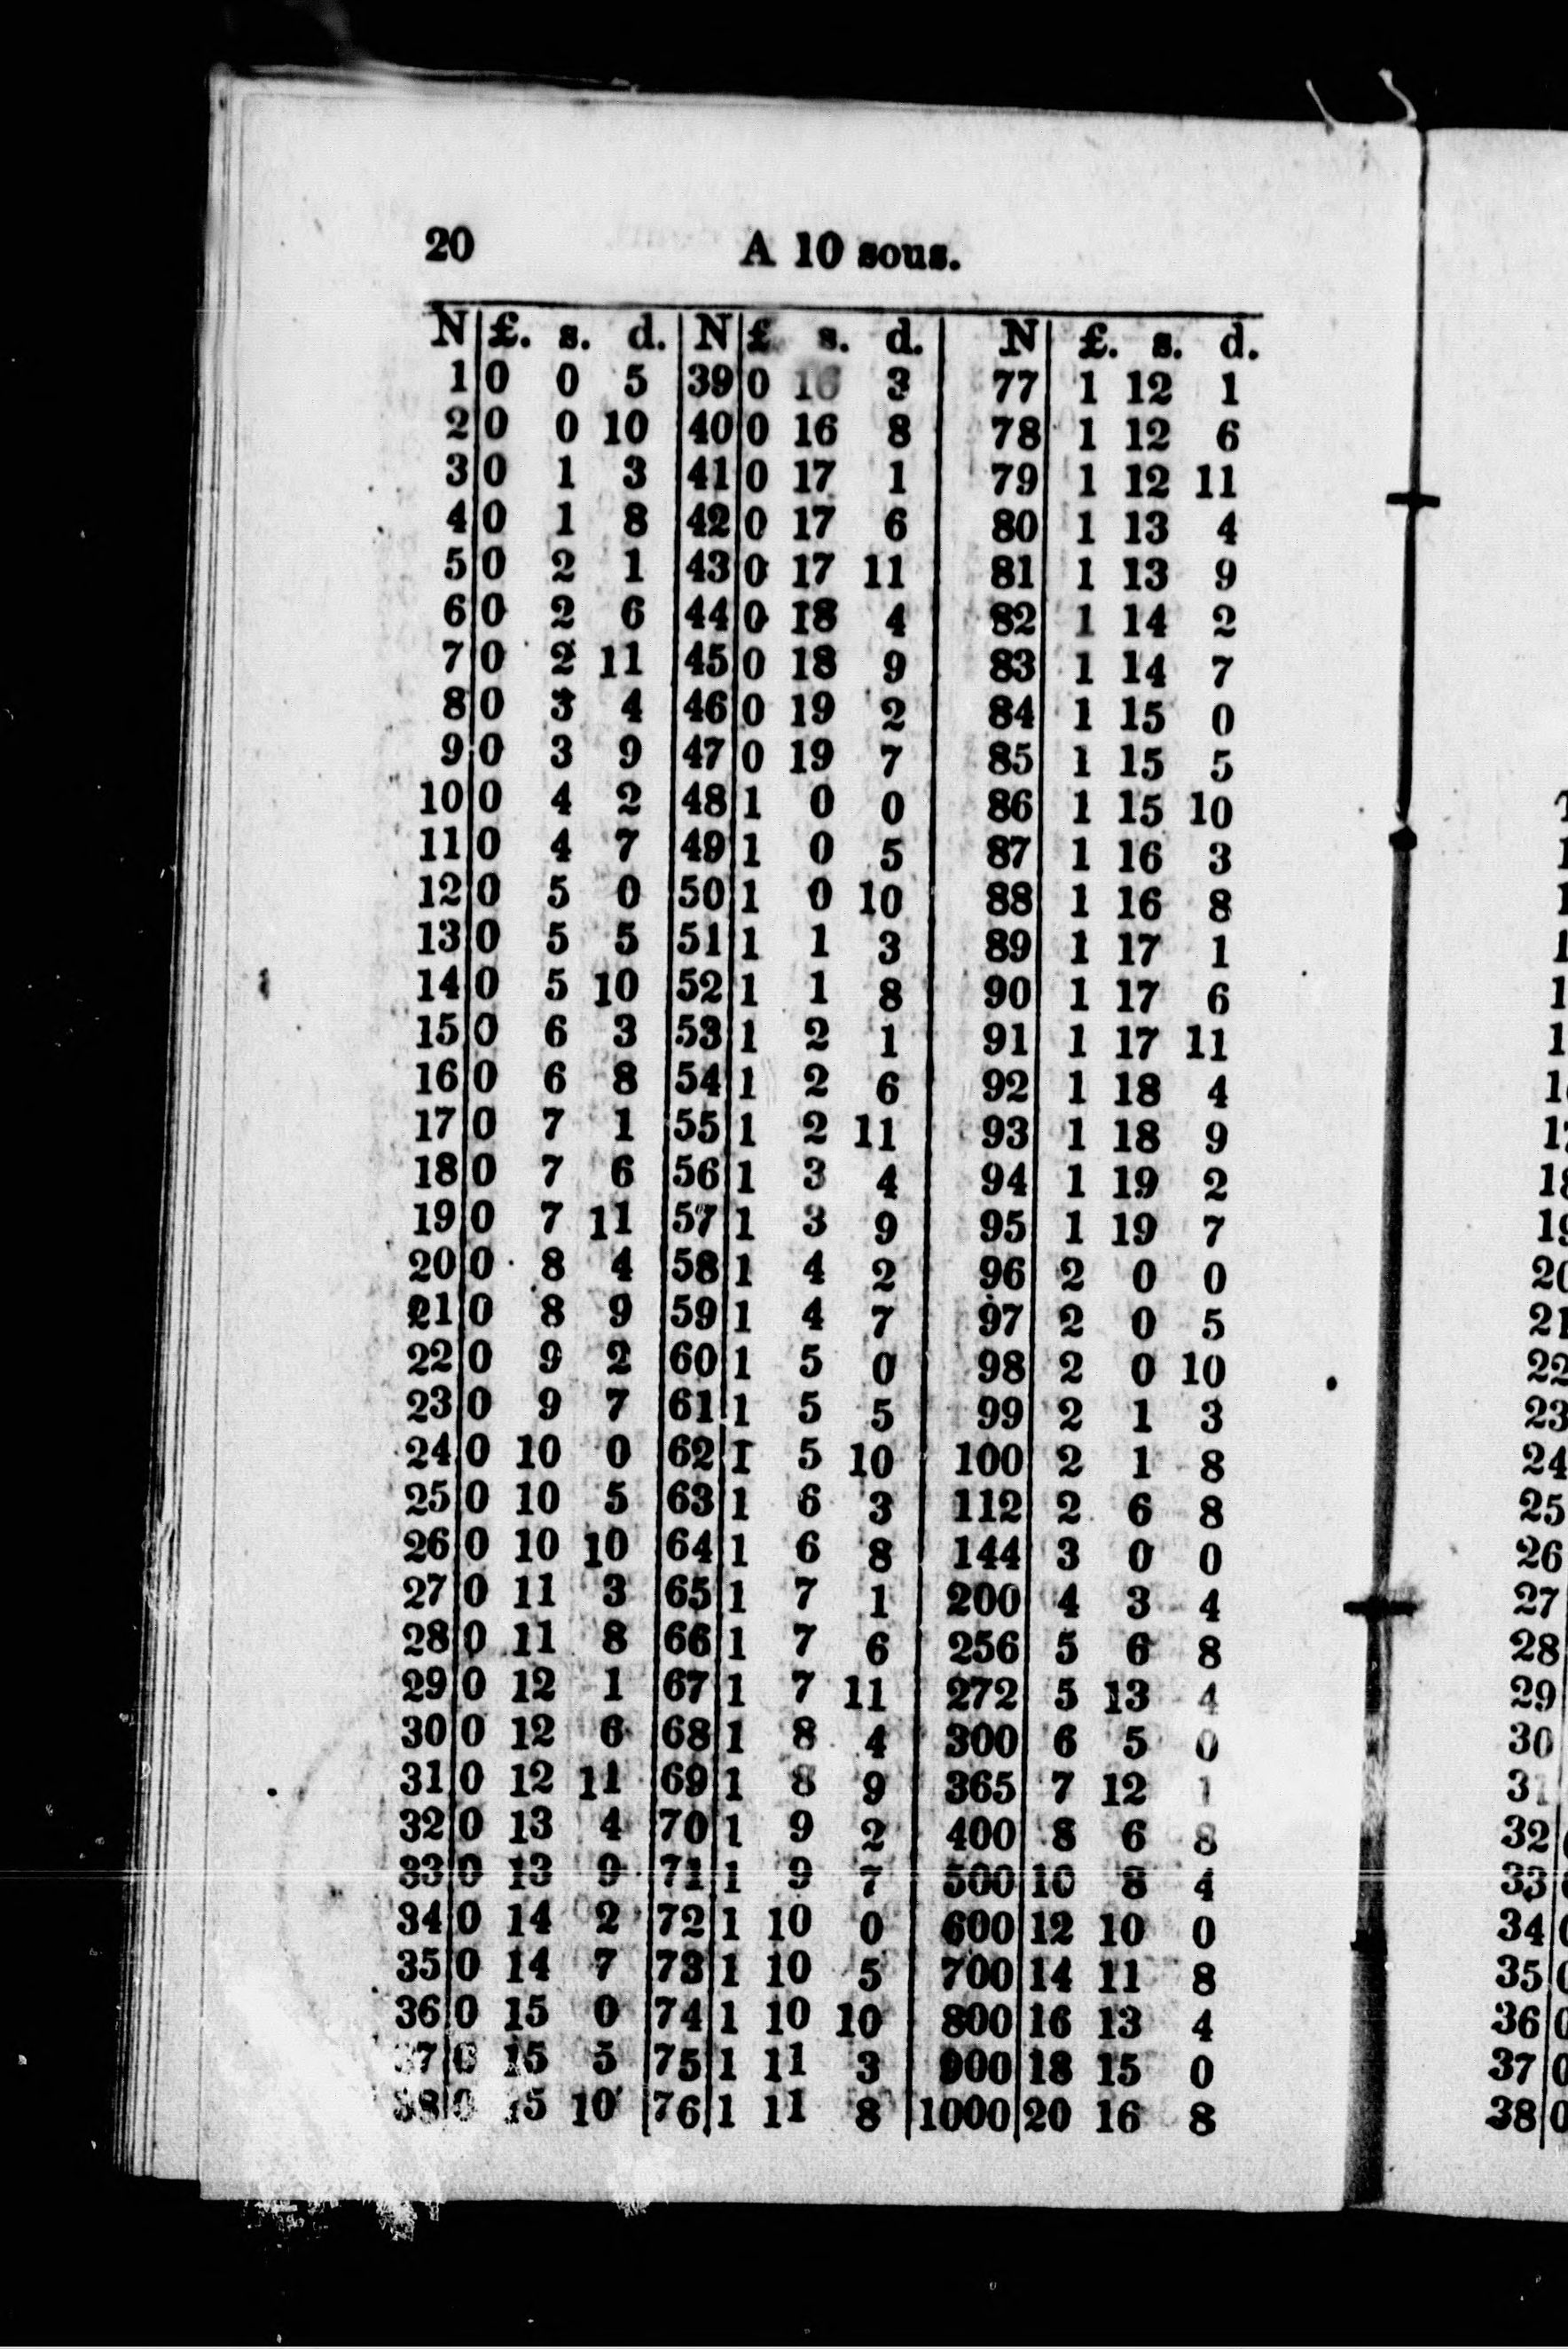 20 A 10 sous.
N £. s. d. N £ s. d. N £. s. d.
1 0 0 5 39 0 16 3 77 1 12 1
2 0 0 10 40 0 16 8 78 1 12 6
3 0 1 3 41 0 17 1 79 1 12 11
4 0 1 8 42 0 17 6 80 1 13 4
5 0 2 1 43 0 17 11 81 1 13 9
6 0 2 6 44 0 18 4 82 1 14 2
7 0 2 11 45 0 18 9 83 1 14 7
8 0 3 4 46 0 19 2 84 1 15 0
9 0 3 9 47 0 19 7 85 1 15 5
10 0 4 2 48 1 0 0 86 1 15 10
11 0 4 7 49 1 0 5 87 1 16 3
12 0 5 0 50 1 0 10 88 1 16 8
13 0 5 5 51 1 1 3 89 1 17 1
14 0 5 10 52 1 1 8 90 1 17 6
15 0 6 3 53 1 2 1 91 1 17 11
16 0 6 8 54 1 2 6 92 1 18 4
17 0 7 1 55 1 2 11 93 1 18 9
18 0 7 6 56 1 3 4 94 1 19 2
19 0 7 11 57 1 3 9 95 1 19 7
20 0 8 4 58 1 4 2 96 2 0 0
21 0 8 9 59 1 4 7 97 2 0 5
22 0 9 2 60 1 5 0 98 2 0 10
23 0 9 7 61 1 5 5 99 2 1 3
24 0 10 0 62 1 5 10 100 2 1 8
25 0 10 5 63 1 6 3 112 2 6 8
26 0 10 10 64 1 6 8 144 3 0 0
27 0 11 3 65 1 7 1 200 4 3 4
28 0 11 8 66 1 7 6 256 5 6 8
29 0 12 1 67 1 7 11 272 5 13 4
30 0 12 6 68 1 8 4 300 6 5 0
31 0 12 11 69 1 8 9 365 7 12 1
32 0 13 4 70 1 9 2 400 8 6 8
33 0 13 9 71 1 9 7 500 10 8 4
34 0 14 2 72 1 10 0 600 12 10 0
35 0 14 7 73 1 10 5 700 14 11 8
36 0 15 0 74 1 10 10 800 16 13 4
37 0 15 5 75 1 11 3 900 18 15 0
38 0 15 10 76 1 11 8 1000 20 16 8
20
21
22
23
24
25
26
27
28
29
30
32
33
34
35
36 0
37 0
38 0